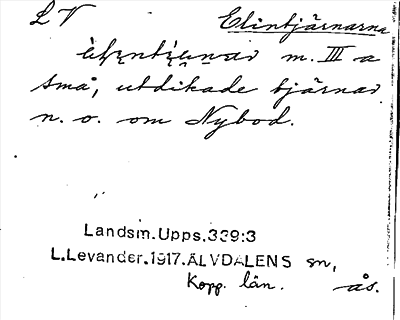 L V Elintjärnarna
m. III a
små, utdikade tjärnar
n. o. om Nybod.
Landsm.Upps.339:3
L.Levander.1917.ÄLVDALENS sn,
Kopp. län. ås.